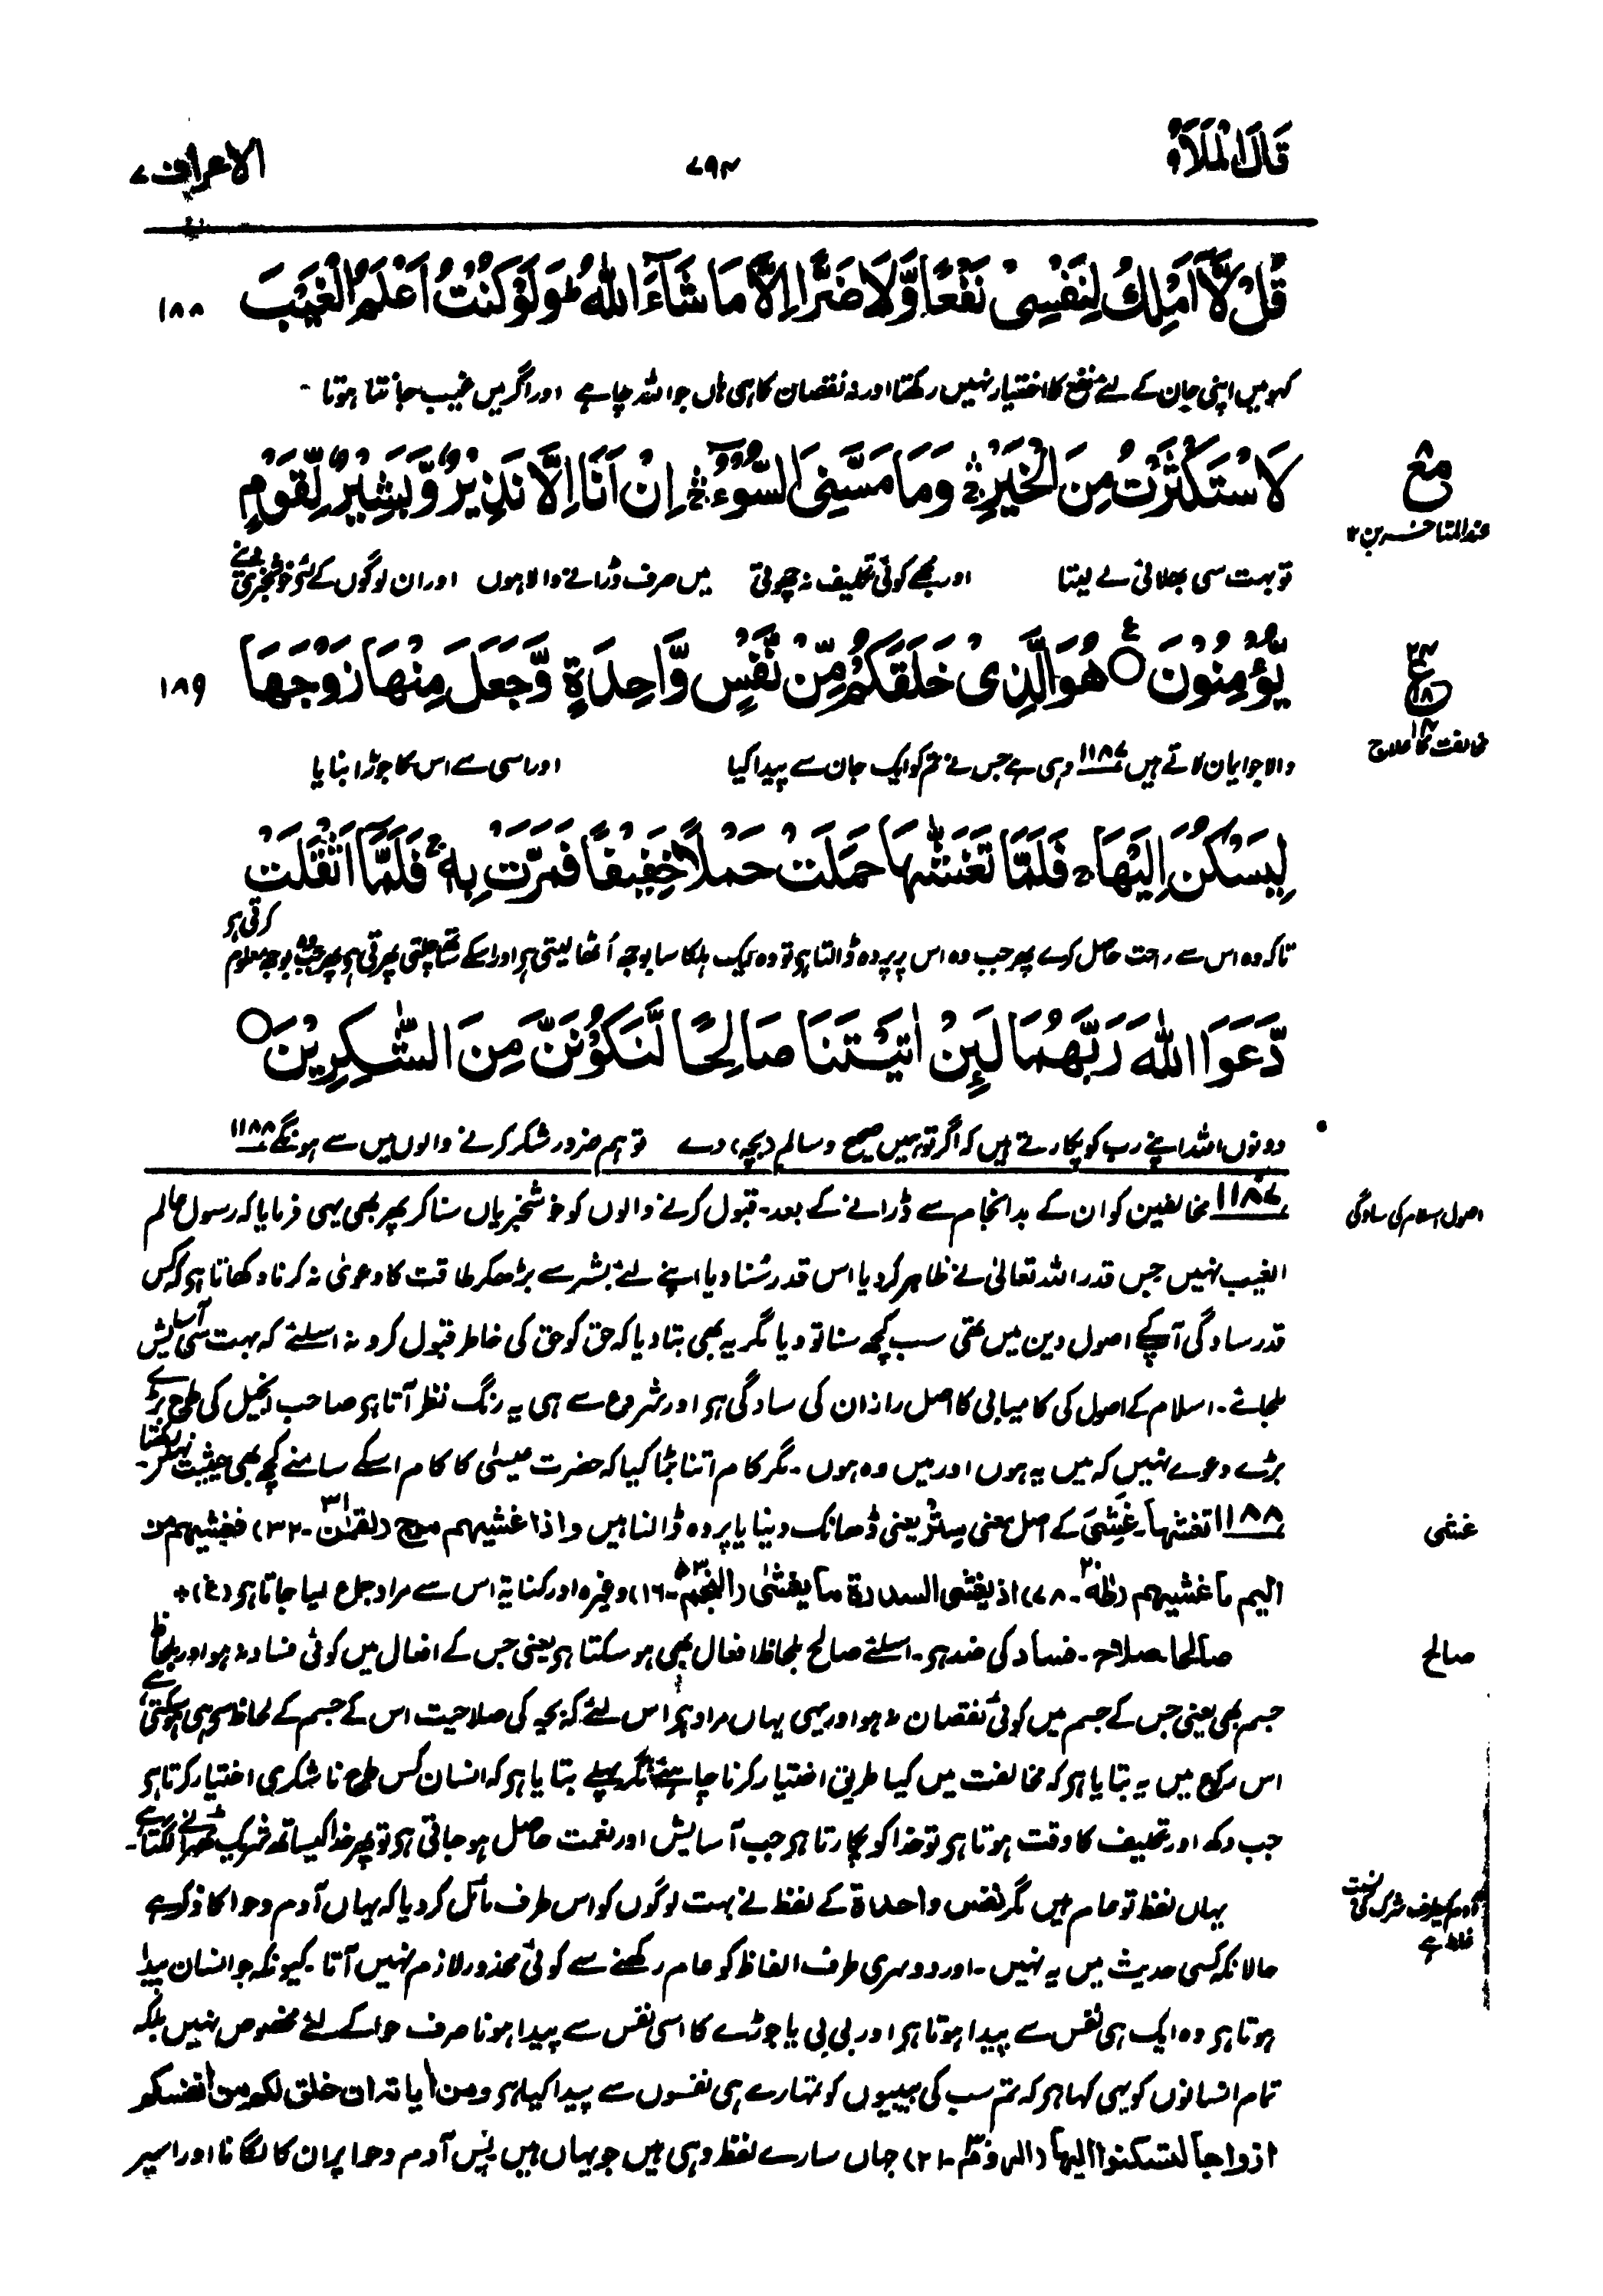 قَالَ الْمَلَاُ ٩
٧٩٤
الاعراف ٧
قُلْ لَّآ اَمْلِكُ لِنَفْسِیْ نَفْعًا وَّلَا ضَرًّا اِلَّا مَا شَآءَ اللّٰهُ ؕ وَلَوْ كُنْتُ اَعْلَمُ الْغَيْبَ
١٨٨
کہو میں اپنی جان کے لئے نفع کا اختیار نہیں رکھتا اور نہ نقصان کا ہی ہاں جو اللہ چاہے اور اگر میں غیب جانتا ہوتا -
لَاسْتَكْثَرْتُ مِنَ الْخَيْرِ ۛۚ وَمَا مَسَّنِیَ السُّوْٓءُ ۛۚ اِنْ اَنَا اِلَّا نَذِيْرٌ وَّبَشِيْرٌ لِّقَوْمٍ
مع
عند المتاخرین ٢
تو بہت سی بھلائی لے لیتا اور مجھے کوئی تکلیف نہ چھوتی میں صرف ڈرانے والا ہوں اور ان لوگوں کے لئے خوشخبری دینے
يُّؤْمِنُوْنَ ○ هُوَ الَّذِیْ خَلَقَكُمْ مِّنْ نَّفْسٍ وَّاحِدَةٍ وَّجَعَلَ مِنْهَا زَوْجَهَا
١٨٩
ع
مخالفت کا علاج
والا جو ایمان لاتے ہیں ١١٨٧ وہی ہے جس نے تم کو ایک جان سے پیدا کیا اور اسی سے اس کا جوڑا بنایا
لِيَسْكُنَ اِلَيْهَا ۚ فَلَمَّا تَغَشّٰىهَا حَمَلَتْ حَمْلًا خَفِيْفًا فَمَرَّتْ بِهٖ ۚ فَلَمَّآ اَثْقَلَتْ
تاکہ وہ اس سے راحت حاصل کرے پھر جب وہ اس پر پردہ ڈالتا ہو تو وہ ایک ہلکا سا بوجھ اُٹھا لیتی ہو اور اسکے ساتھ چلتی پھرتی ہو پھر جب وہ بوجھ معلوم کرتی ہو
دَّعَوَا اللّٰهَ رَبَّهُمَا لَئِنْ اٰتَيْتَنَا صَالِحًا لَّنَكُوْنَنَّ مِنَ الشّٰكِرِيْنَ ○
دونوں اللہ اپنے رب کو پکارتے ہیں کہ اگر تو ہمیں صحیح و سالم (بچہ) دے تو ہم ضرور شکر کرنے والوں میں سے ہونگے ١١٨٨
١١٨٧ مخالفین کو ان کے بد انجام سے ڈرانے کے بعد۔ قبول کرنے والوں کو خوشخبریاں سنا کر پھر بھی یہی فرمایا کہ رسول عالم
اصول اسلام کی سادگی
الغیب نہیں جس قدر اللہ تعالیٰ نے ظاہر کر دیا اس قدر سُنا دیا اپنے لئے بشر سے بڑھکر طاقت کا دعویٰ نہ کرنا دکھاتا ہو کہ کس
قدر سادگی آپکے اصول دین میں تھی سب کچھ سنا تو دیا مگر یہ بھی بتا دیا کہ حق کو حق کی خاطر قبول کرو نہ اسلئے کہ بہت سی آسایش
ملجائے۔ اسلام کے اصول کی کامیابی کا اصل راز ان کی سادگی ہو اور شروع سے ہی یہ رنگ نظر آتا ہو صاحب انجیل کی طرح بڑے
بڑے دعوے نہیں کہ میں یہ ہوں اور میں وہ ہوں۔ مگر کام اتنا بڑا کیا کہ حضرت عیسیٰ کا کام اسکے سامنے کچھ بھی حیثیت نہیں رکھتا۔
١١٨٨ تغشٰہا۔ غَشِیَ کے اصل معنی سِتْرٌ یعنی ڈھانک دینا یا پردہ ڈالنا ہیں و اذا غشیھم موج (لقمٰن ٣١-٣٢) فغشیھم من
غشی
الیم ما غشیھم (طٰہٰ ٢٠-٧٨) اذ یغشی السدرۃ ما یغشیٰ (النجم ٥٣-١٦) وغیرہ اور کنایۃً اس سے مراد جماع لیا جاتا ہو (غ)+
صالحا۔ صلاح۔ فساد کی ضد ہو۔ اسلئے صالح بلحاظ افعال بھی ہو سکتا ہو یعنی جس کے افعال میں کوئی فساد نہ ہو اور بلحاظ
صالح
جسم بھی یعنی جس کے جسم میں کوئی نقصان نہ ہو اور یہی یہاں مراد ہو اس لئے کہ بچہ کی صلاحیت اس کے جسم کے لحاظ سے ہی ہو سکتی ہے
اس رکوع میں یہ بتایا ہو کہ مخالفت میں کیا طریق اختیار کرنا چاہئے مگر پہلے بتایا ہو کہ انسان کس طرح ناشکری اختیار کرتا ہو
جب دکھ اور تکلیف کا وقت ہوتا ہو تو خدا کو پکارتا ہو جب آسایش اور نعمت حاصل ہو جاتی ہو تو پھر خدا کیساتھ شریک ٹھہرانے لگتا ہے۔
یہاں لفظ تو عام ہیں مگر نفس واحدۃ کے لفظ نے بہت لوگوں کو اس طرف مائل کر دیا کہ یہاں آدم و حوا کا ذکر ہے
آدم کیطرف شرک کی نسبت غلط ہے
حالانکہ کسی حدیث میں یہ نہیں۔ اور دوسری طرف الفاظ کو عام رکھنے سے کوئی محذور لازم نہیں آتا۔ کیونکہ جو انسان پیدا
ہوتا ہو وہ ایک ہی نفس سے پیدا ہوتا ہو اور بی بی یا جوڑے کا اسی نفس سے پیدا ہونا صرف حوا کے لئے مخصوص نہیں بلکہ
تمام انسانوں کو یہی کہا ہو کہ تم سب کی بیبیوں کو تمہارے ہی نفسوں سے پیدا کیا ہو ومن اٰیاتہ ان خلق لکم من انفسکم
ازواجا لتسکنوا الیھا (الروم-٢١) جہاں سارے لفظ وہی ہیں جو یہاں ہیں پس آدم و حوا پر ان کا لگانا اور اسپر